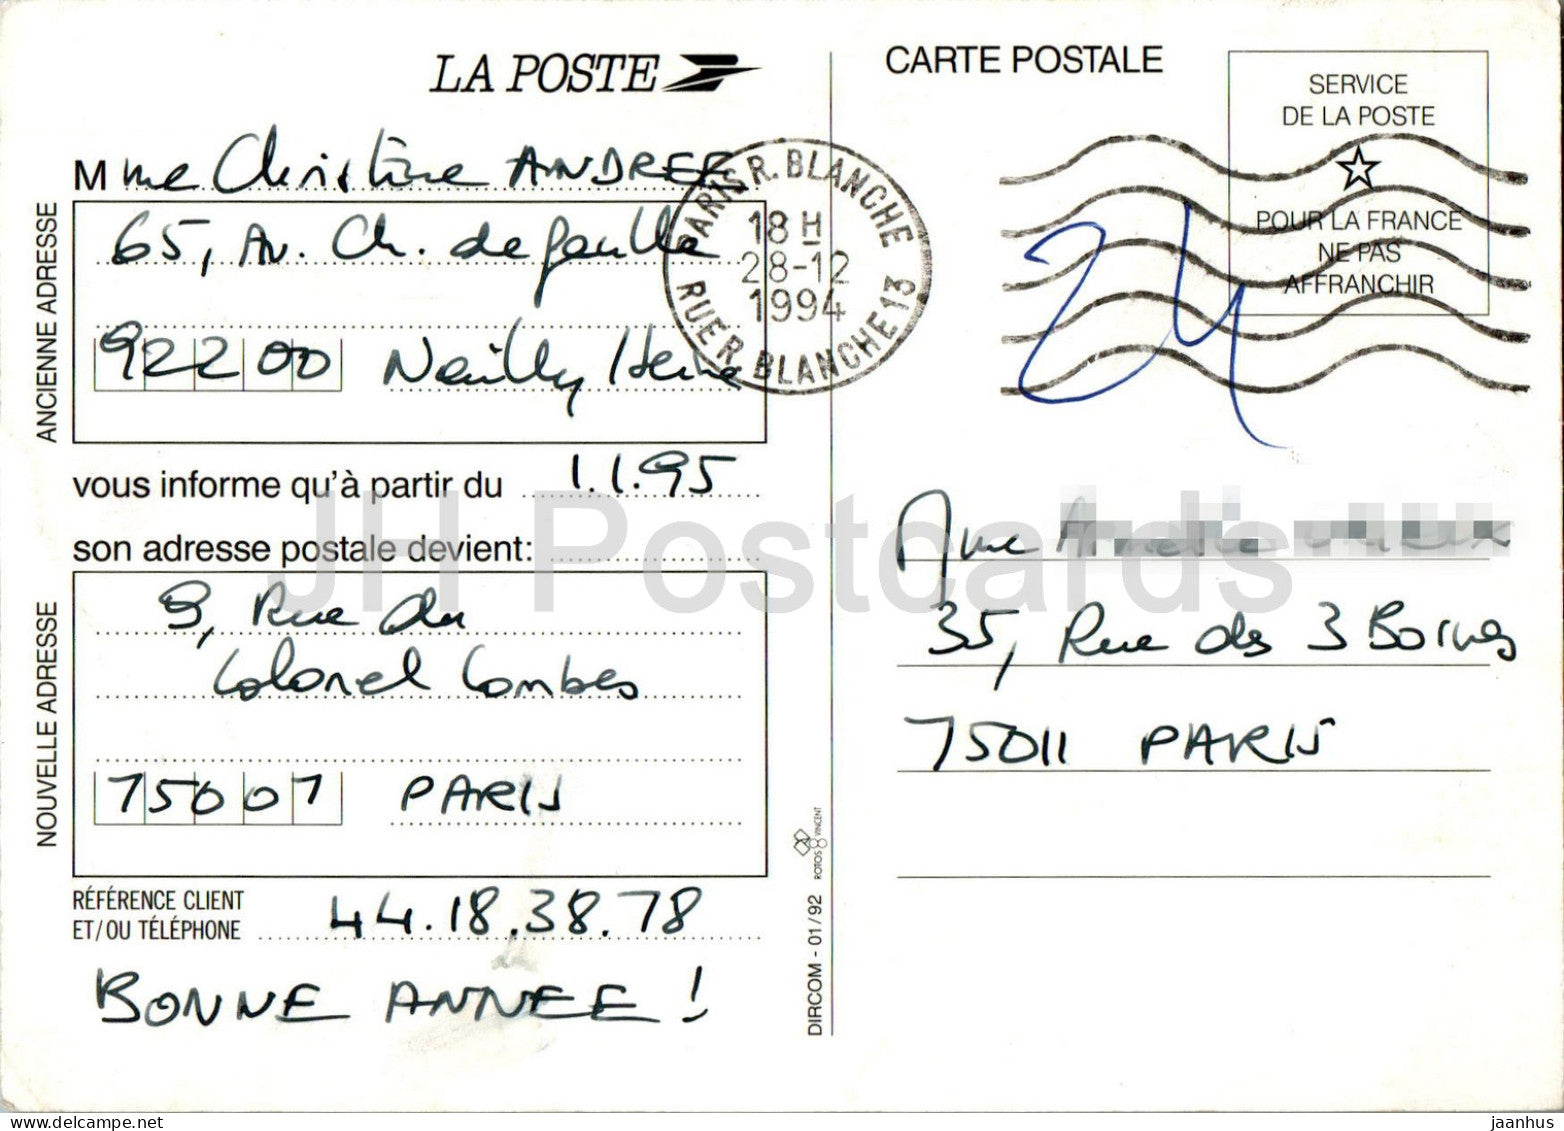 LA POSTE
Mme Christine ANDREE
ANCIENNE ADRESSE
65, Av. Ch. de Gaulle
92200 Neuilly /Seine
vous informe qu'à partir du 1.1.95
son adresse postale devient:
NOUVELLE ADRESSE
9, Rue du
Colonel Combes
75007 PARIS
RÉFÉRENCE CLIENT
ET/OU TÉLÉPHONE 44.18.38.78
BONNE ANNEE !
DIRCOM - 01/92
ROTOS VINCENT
CARTE POSTALE
SERVICE
DE LA POSTE
POUR LA FRANCE
NE PAS
AFFRANCHIR
PARIS R. BLANCHE
18 H
28-12
1994
RUE R. BLANCHE 13
24
Mme
35, Rue des 3 Bornes
75011 PARIS
JH Postcards
jaanhus